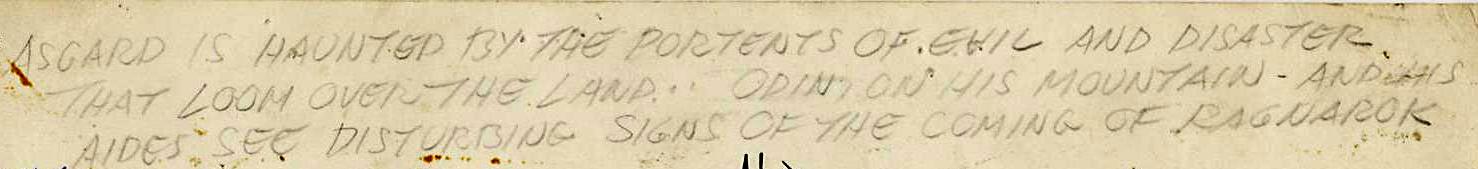 ASGARD IS HAUNTED BY THE PORTENTS OF EVIL AND DISASTER
THAT LOOM OVER THE LAND.. ODIN, ON HIS MOUNTAIN - AND HIS
AIDES SEE DISTURBING SIGNS OF THE COMING OF RAGNAROK